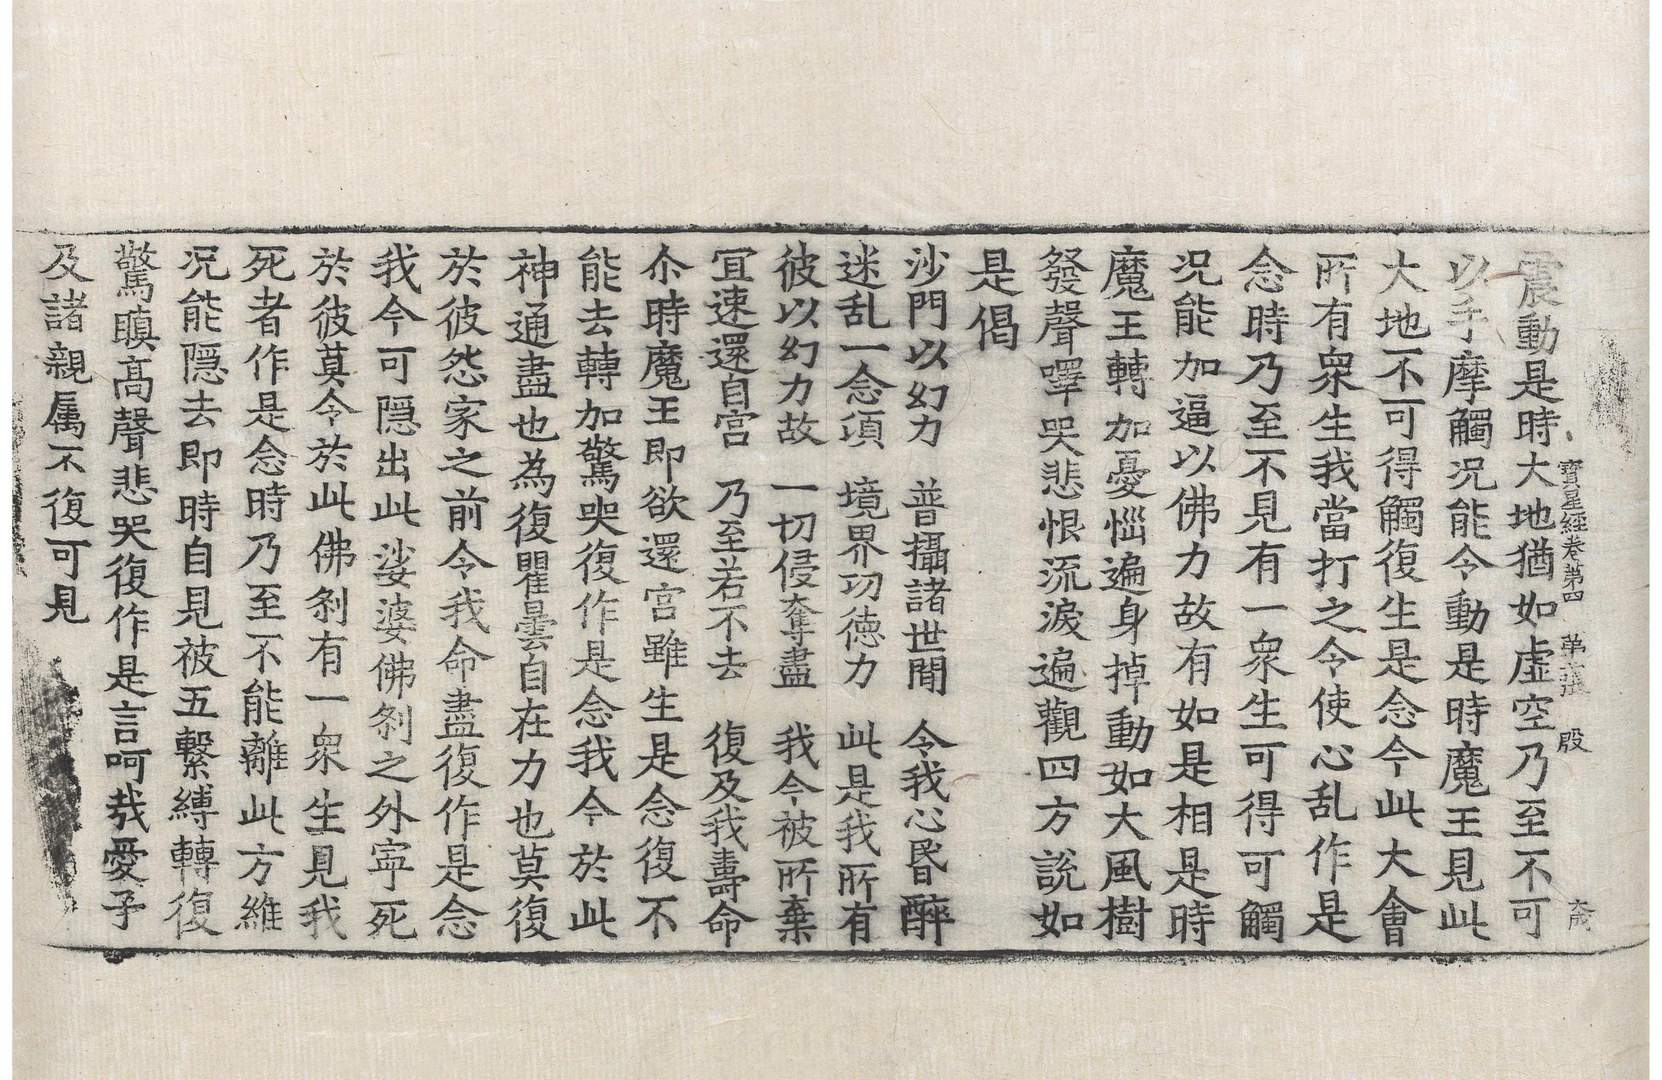 震動是時大地猶如虛空乃至不可
寶星經卷第四　第六張　殷
以手摩觸况能令動是時魔王見此
大地不可得觸復生是念今此大會
所有衆生我當打之令使心乱作是
念時乃至不見有一衆生可得可觸
况能加逼以佛力故有如是相是時
魔王轉加憂惱遍身掉動如大風樹
發聲嘷哭悲恨流淚遍觀四方說如
是偈
沙門以幻力　普攝諸世間　令我心昏醉
迷乱一念頃　境界功德力　此是我所有
彼以幻力故　一切侵奪盡　我今被所棄
冝速還自宫　乃至若不去　復及我壽命
尒時魔王即欲還宫雖生是念復不
能去轉加驚哭復作是念我今於此
神通盡也為復瞿曇自在力也莫復
於彼怨家之前令我命盡復作是念
我今可隱出此娑婆佛刹之外寜死
於彼莫令於此佛刹有一衆生見我
死者作是念時乃至不能離此方維
况能隱去即時自見被五繫縛轉復
驚瞋髙聲悲哭復作是言呵㢤愛子
及諸親属不復可見